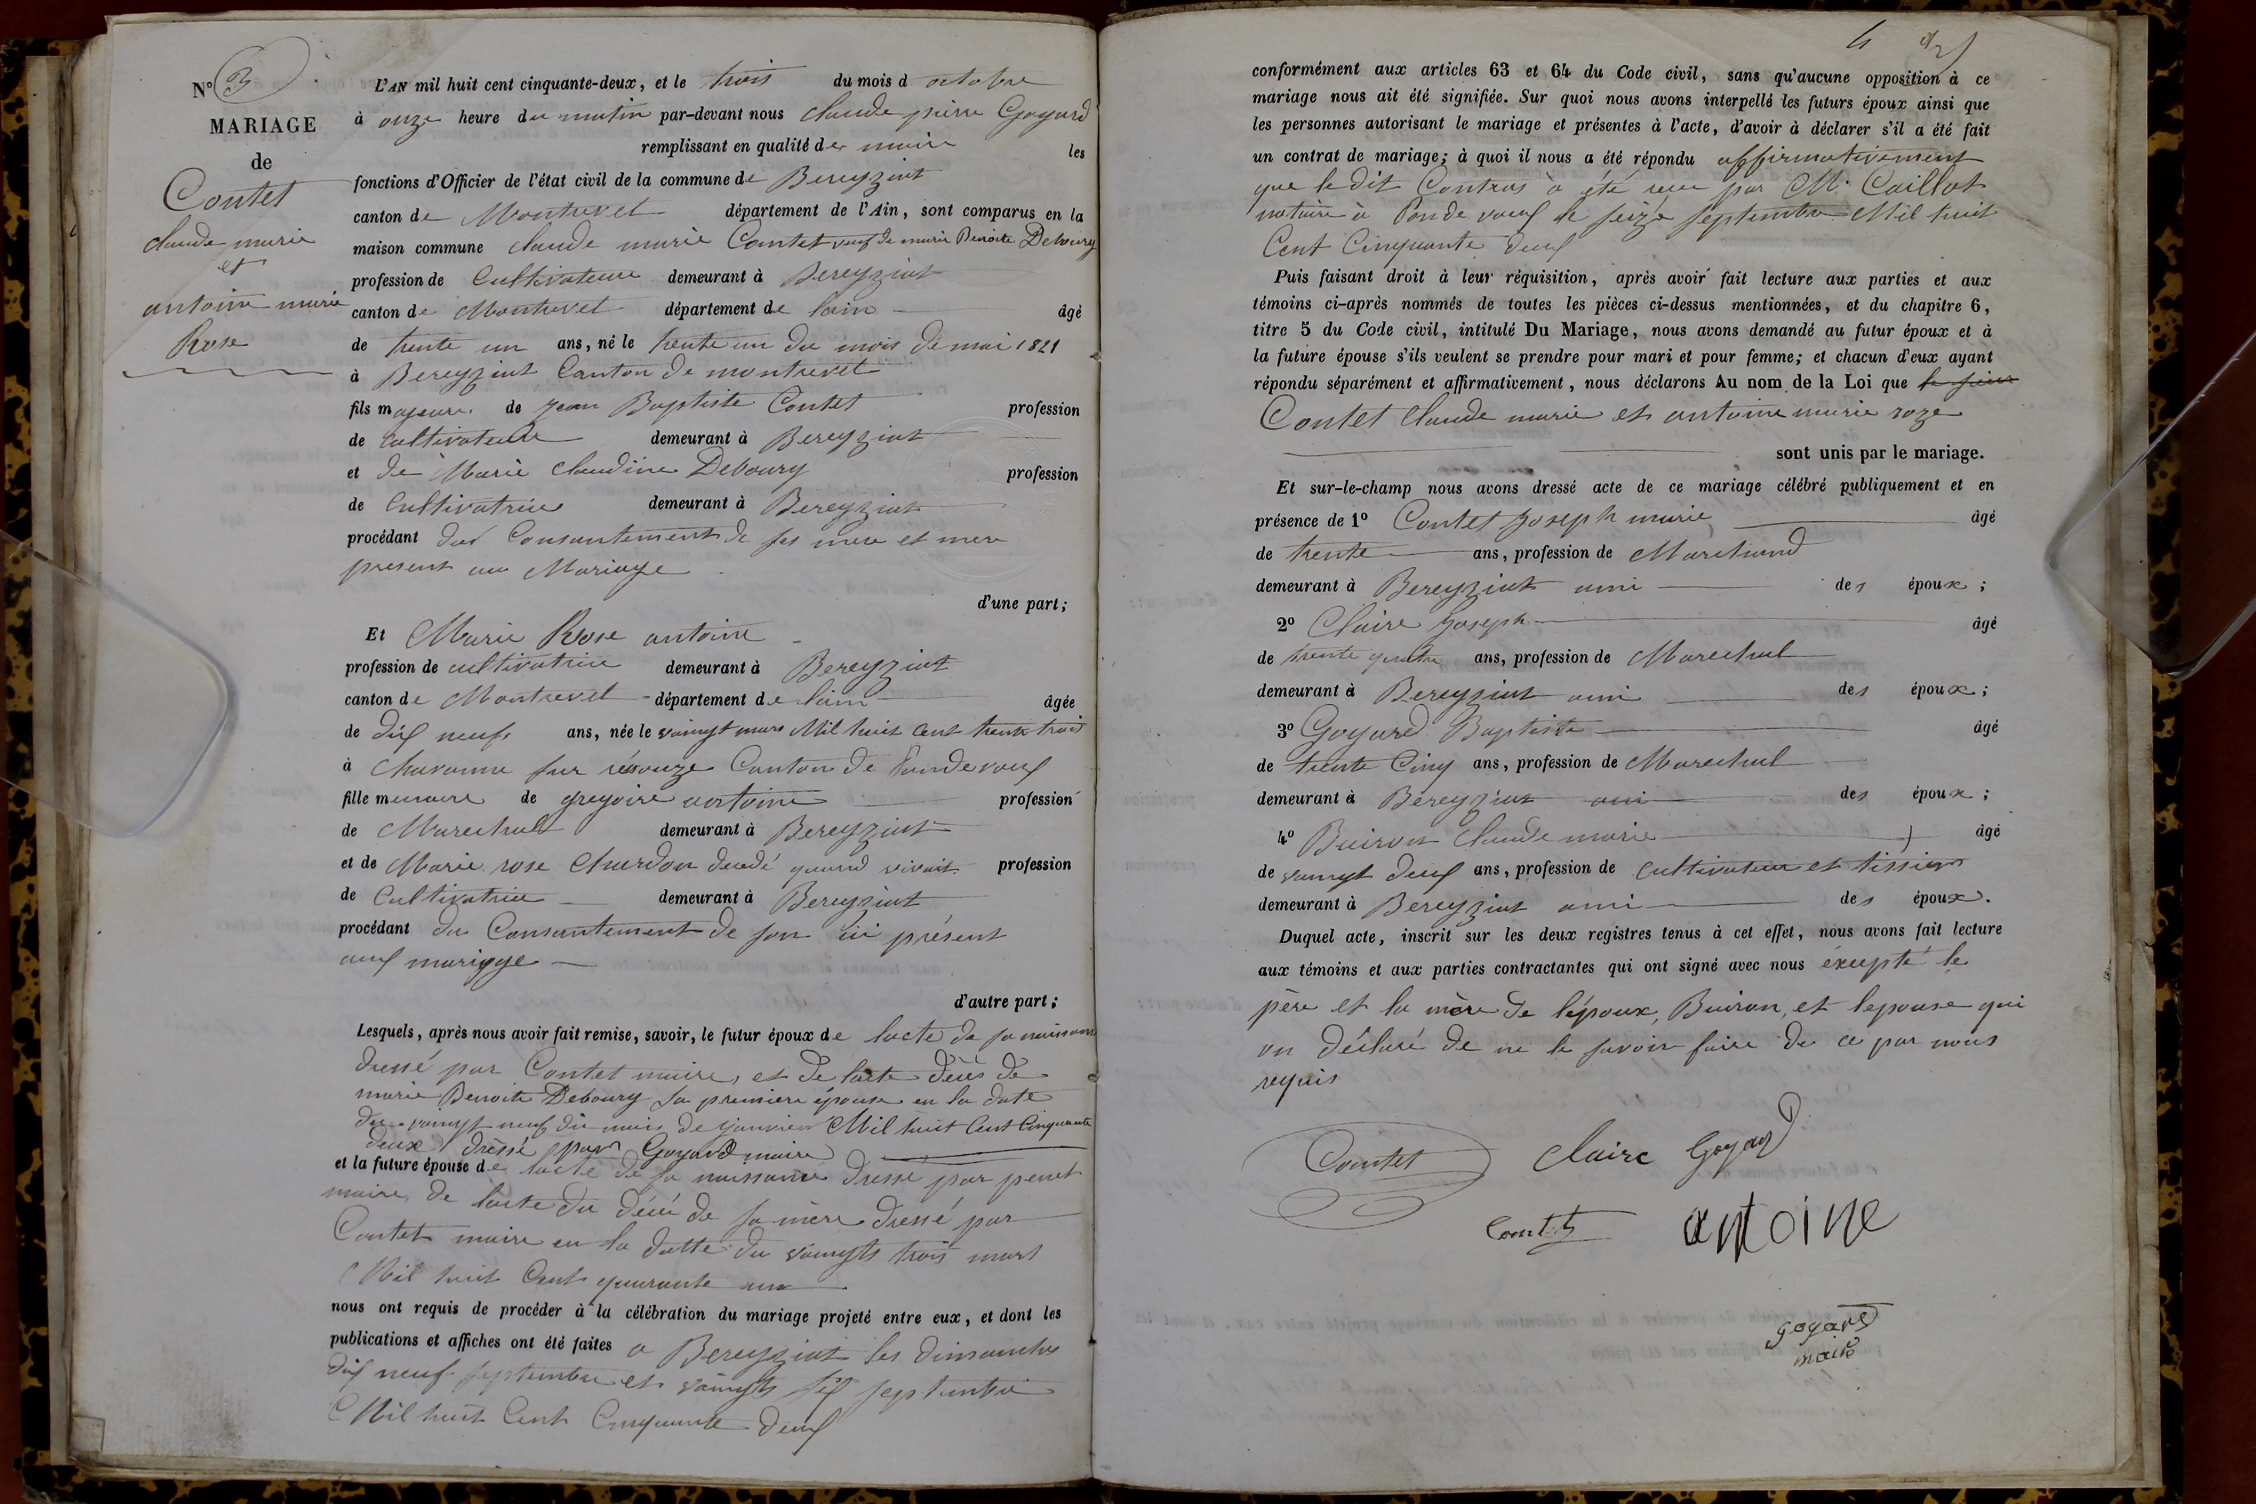 N° 3
MARIAGE
de
Contet
claude marie
et
antoine marie
Rose
L'AN mil huit cent cinquante-deux, et le trois du mois d octobre
à onze heure du matin par-devant nous claude pierre Goyard
remplissant en qualité de maire les
fonctions d'Officier de l'état civil de la commune de Bereyziat
canton de Montrevel département de l'Ain, sont comparus en la
maison commune claude marie Contet veuf de marie Benoite Deboury
profession de Cultivateur demeurant à Bereyziat
canton de Montrevel département de lain âgé
de trente un ans, né le trente un du mois de mai 1821
à Bereyziat Canton de montrevel
fils majeur de jean Baptiste Contet profession
de cultivateur demeurant à Bereyziat
et de Marie Claudine Deboury profession
de Cultivatrice demeurant à Bereyziat
procédant du Consentement de ses mere et mere
present au Mariage
d'une part;
Et Marie Rose antoine
profession de cultivatrice demeurant à Bereyziat
canton de Montrevel département de lain âgée
de dix neuf ans, née le vaingt mars Mil huit Cent trente trois
à chavanne sur résouze Canton de Pondevaux
fille mineure de gregoire antoine profession
de Marechal demeurant à Bereyziat
et de Marie rose Chardon décédé quand vivait profession
de Cultivatrice demeurant à Bereyziat
procédant du Consantement de son présent
aux mariage
d'autre part;
Lesquels, après nous avoir fait remise, savoir, le futur époux de lacte de sa naissance
dressé par Contet maire, et de lacte décés de
marie Benoite Deboury sa premiere épouse en la date
du vaingt neuf du mois de janvier Mil huit Cent Cinquante
deux dressé par Goyard maire
et la future épouse de lacte de sa naissance dressé par penet
maire, de lacte du décé de sa mère dressé par
Contet maire en la datte du vaingts trois mars
Mil huit Cent quarante un
nous ont requis de procéder à la célébration du mariage projeté entre eux, et dont les
publications et affiches ont été faites a Bereyziat les dimanches
dix neuf septembre et vaingts six septembre
Mil huit Cent Cinquante deux
4
conformément aux articles 63 et 64 du Code civil, sans qu'aucune opposition à ce
mariage nous ait été signifiée. Sur quoi nous avons interpellé les futurs époux ainsi que
les personnes autorisant le mariage et présentes à l'acte, d'avoir à déclarer s'il a été fait
un contrat de mariage; à quoi il nous a été répondu affirmativement
que le dit Contras à été reçu par M. Caillat
notaire à Pondevaux le seize septembre Mil huit
Cent Cinquante deux
Puis faisant droit à leur réquisition, après avoir fait lecture aux parties et aux
témoins ci-après nommés de toutes les pièces ci-dessus mentionnées, et du chapitre 6,
titre 5 du Code civil, intitulé Du Mariage, nous avons demandé au futur époux et à
la future épouse s'ils veulent se prendre pour mari et pour femme; et chacun d'eux ayant
répondu séparément et affirmativement, nous déclarons Au nom de la Loi que
Contet Claude marie et antoine marie roze
sont unis par le mariage.
Et sur-le-champ nous avons dressé acte de ce mariage célébré publiquement et en
présence de 1° Contet Joseph marie âgé
de trente ans, profession de Marchand
demeurant à Bereyziat ami des époux;
2° Claire Joseph âgé
de trente quatre ans, profession de Marechal
demeurant à Bereyziat ami des époux;
3° Goyard Baptiste âgé
de trente Cinq ans, profession de Marechal
demeurant à Bereyziat ami des époux;
4° Buiron Claude marie âgé
de vaingt deux ans, profession de Cultivateur et tissier
demeurant à Bereyziat ami des époux.
Duquel acte, inscrit sur les deux registres tenus à cet effet, nous avons fait lecture
aux témoins et aux parties contractantes qui ont signé avec nous éxcepté le
père et la mère de l'époux, Buiron, et lepouse qui
on déclaré de ne le savoir faire de ce par nous
requis
Contet Claire Goyard
Contet antoine
goyard
maire